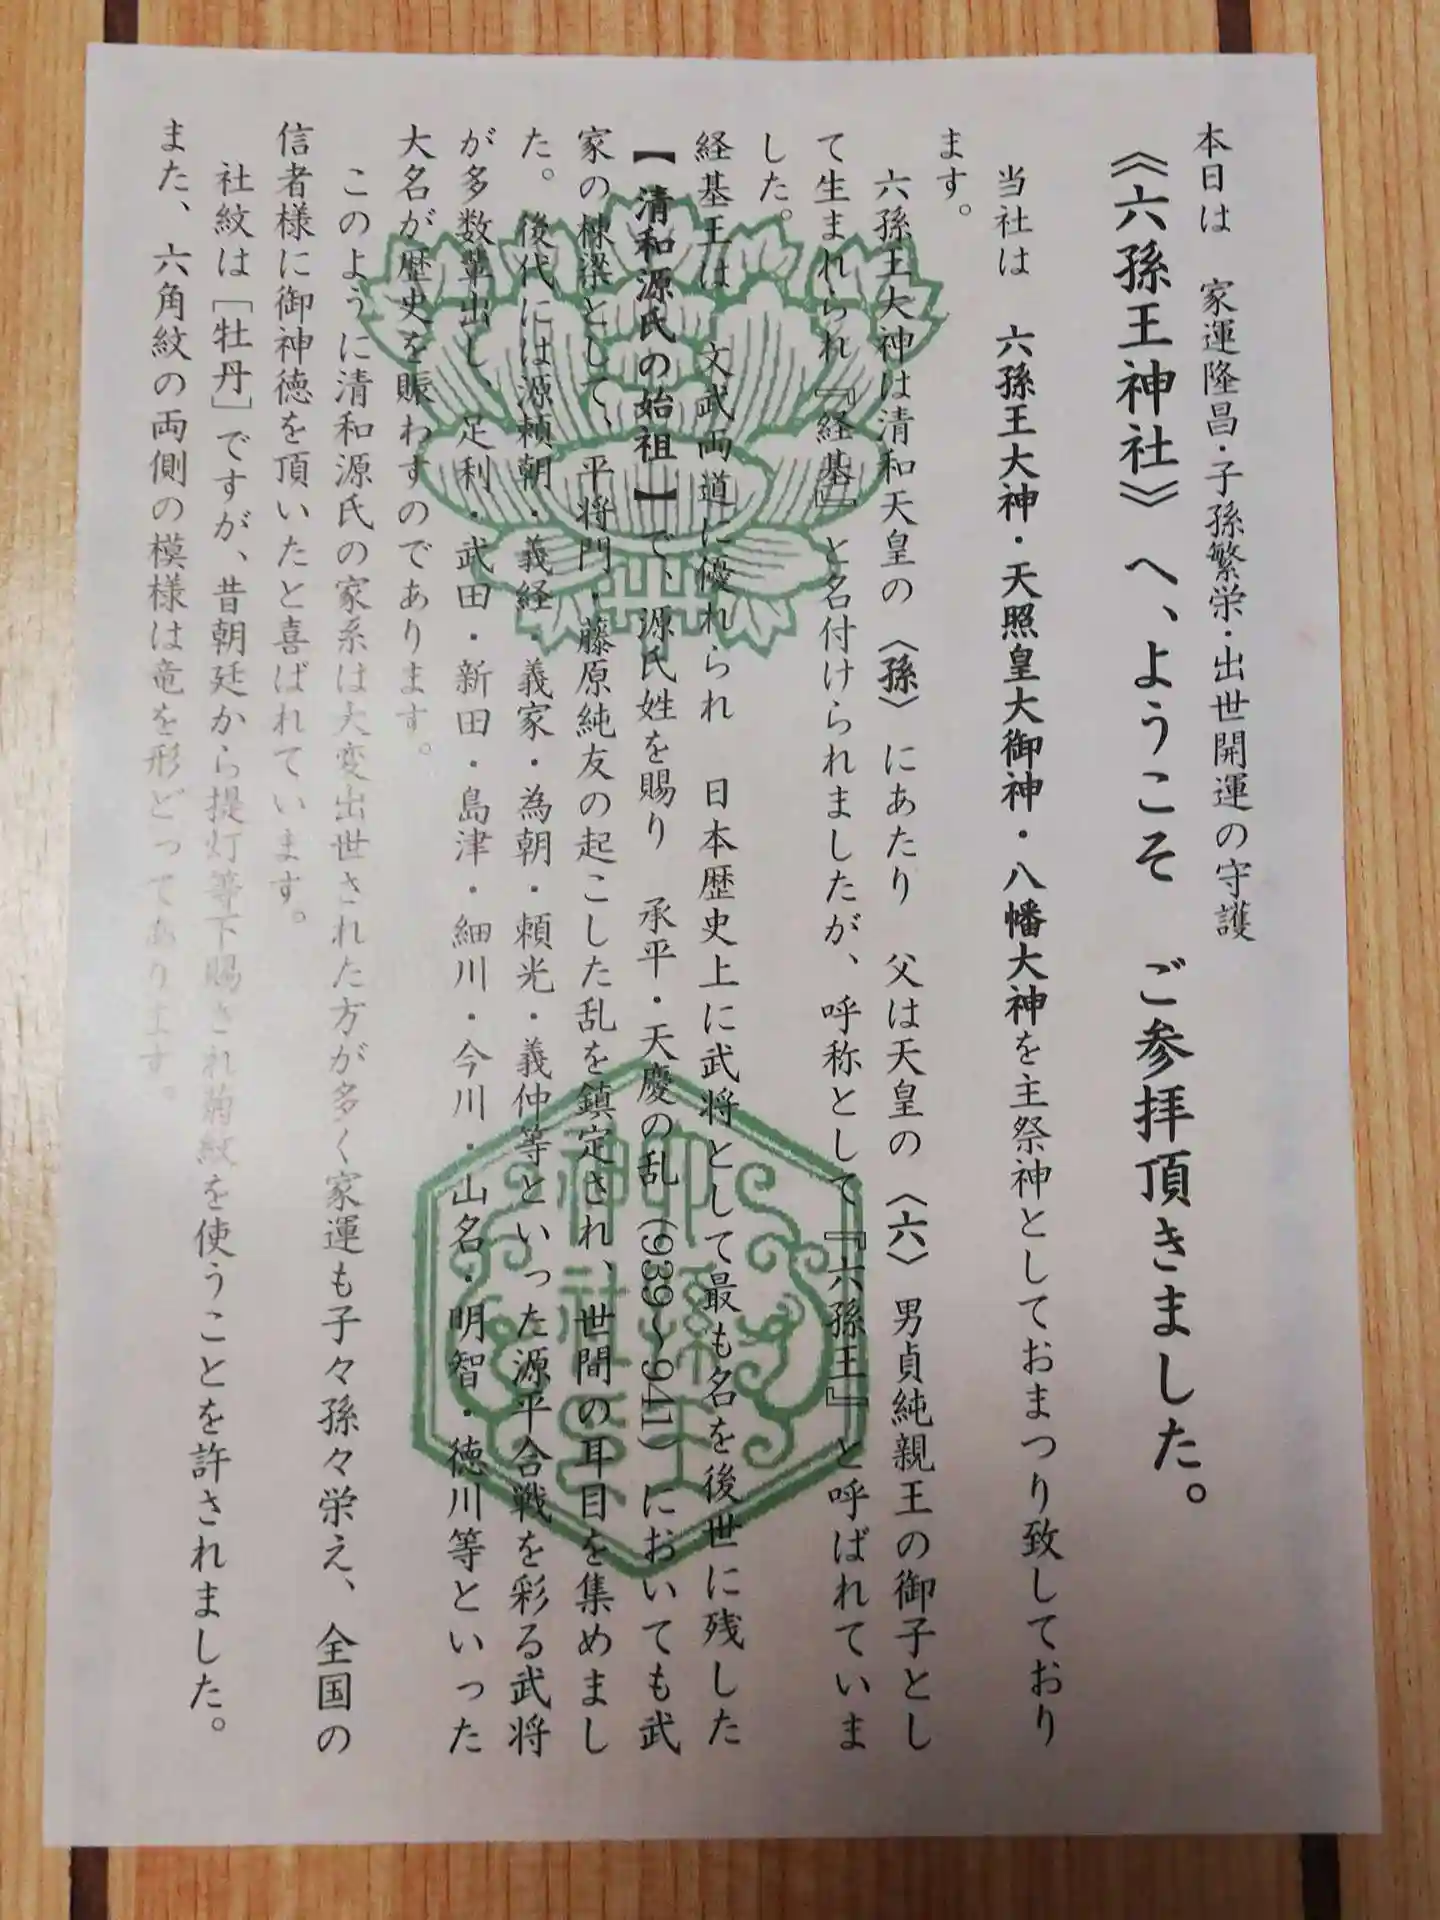 本日は　家運隆昌・子孫繁栄・出世開運の守護
《六孫王神社》へ、ようこそ　ご参拝頂きました。
当社は　六孫王大神・天照皇大御神・八幡大神を主祭神としておまつり致しており
ます。
六孫王大神は清和天皇の〈孫〉にあたり　父は天皇の〈六〉男貞純親王の御子とし
て生まれられ『経基』と名付けられましたが、呼称として『六孫王』と呼ばれていま
した。
経基王は　文武両道に優れられ　日本歴史上に武将として最も名を後世に残した
【清和源氏の始祖】で、源氏姓を賜り　承平・天慶の乱（939～941）においても武
家の棟梁として、平将門・藤原純友の起こした乱を鎮定され、世間の耳目を集めまし
た。後代には源頼朝・義経・義家・為朝・頼光・義仲等といった源平合戦を彩る武将
が多数輩出し、足利・武田・新田・島津・細川・今川・山名・明智・徳川等といった
大名が歴史を賑わすのであります。
このように清和源氏の家系は大変出世された方が多く家運も子々孫々栄え、全国の
信者様に御神徳を頂いたと喜ばれています。
社紋は［牡丹］ですが、昔朝廷から提灯等下賜され菊紋を使うことを許されました。
また、六角紋の両側の模様は竜を形どってあります。